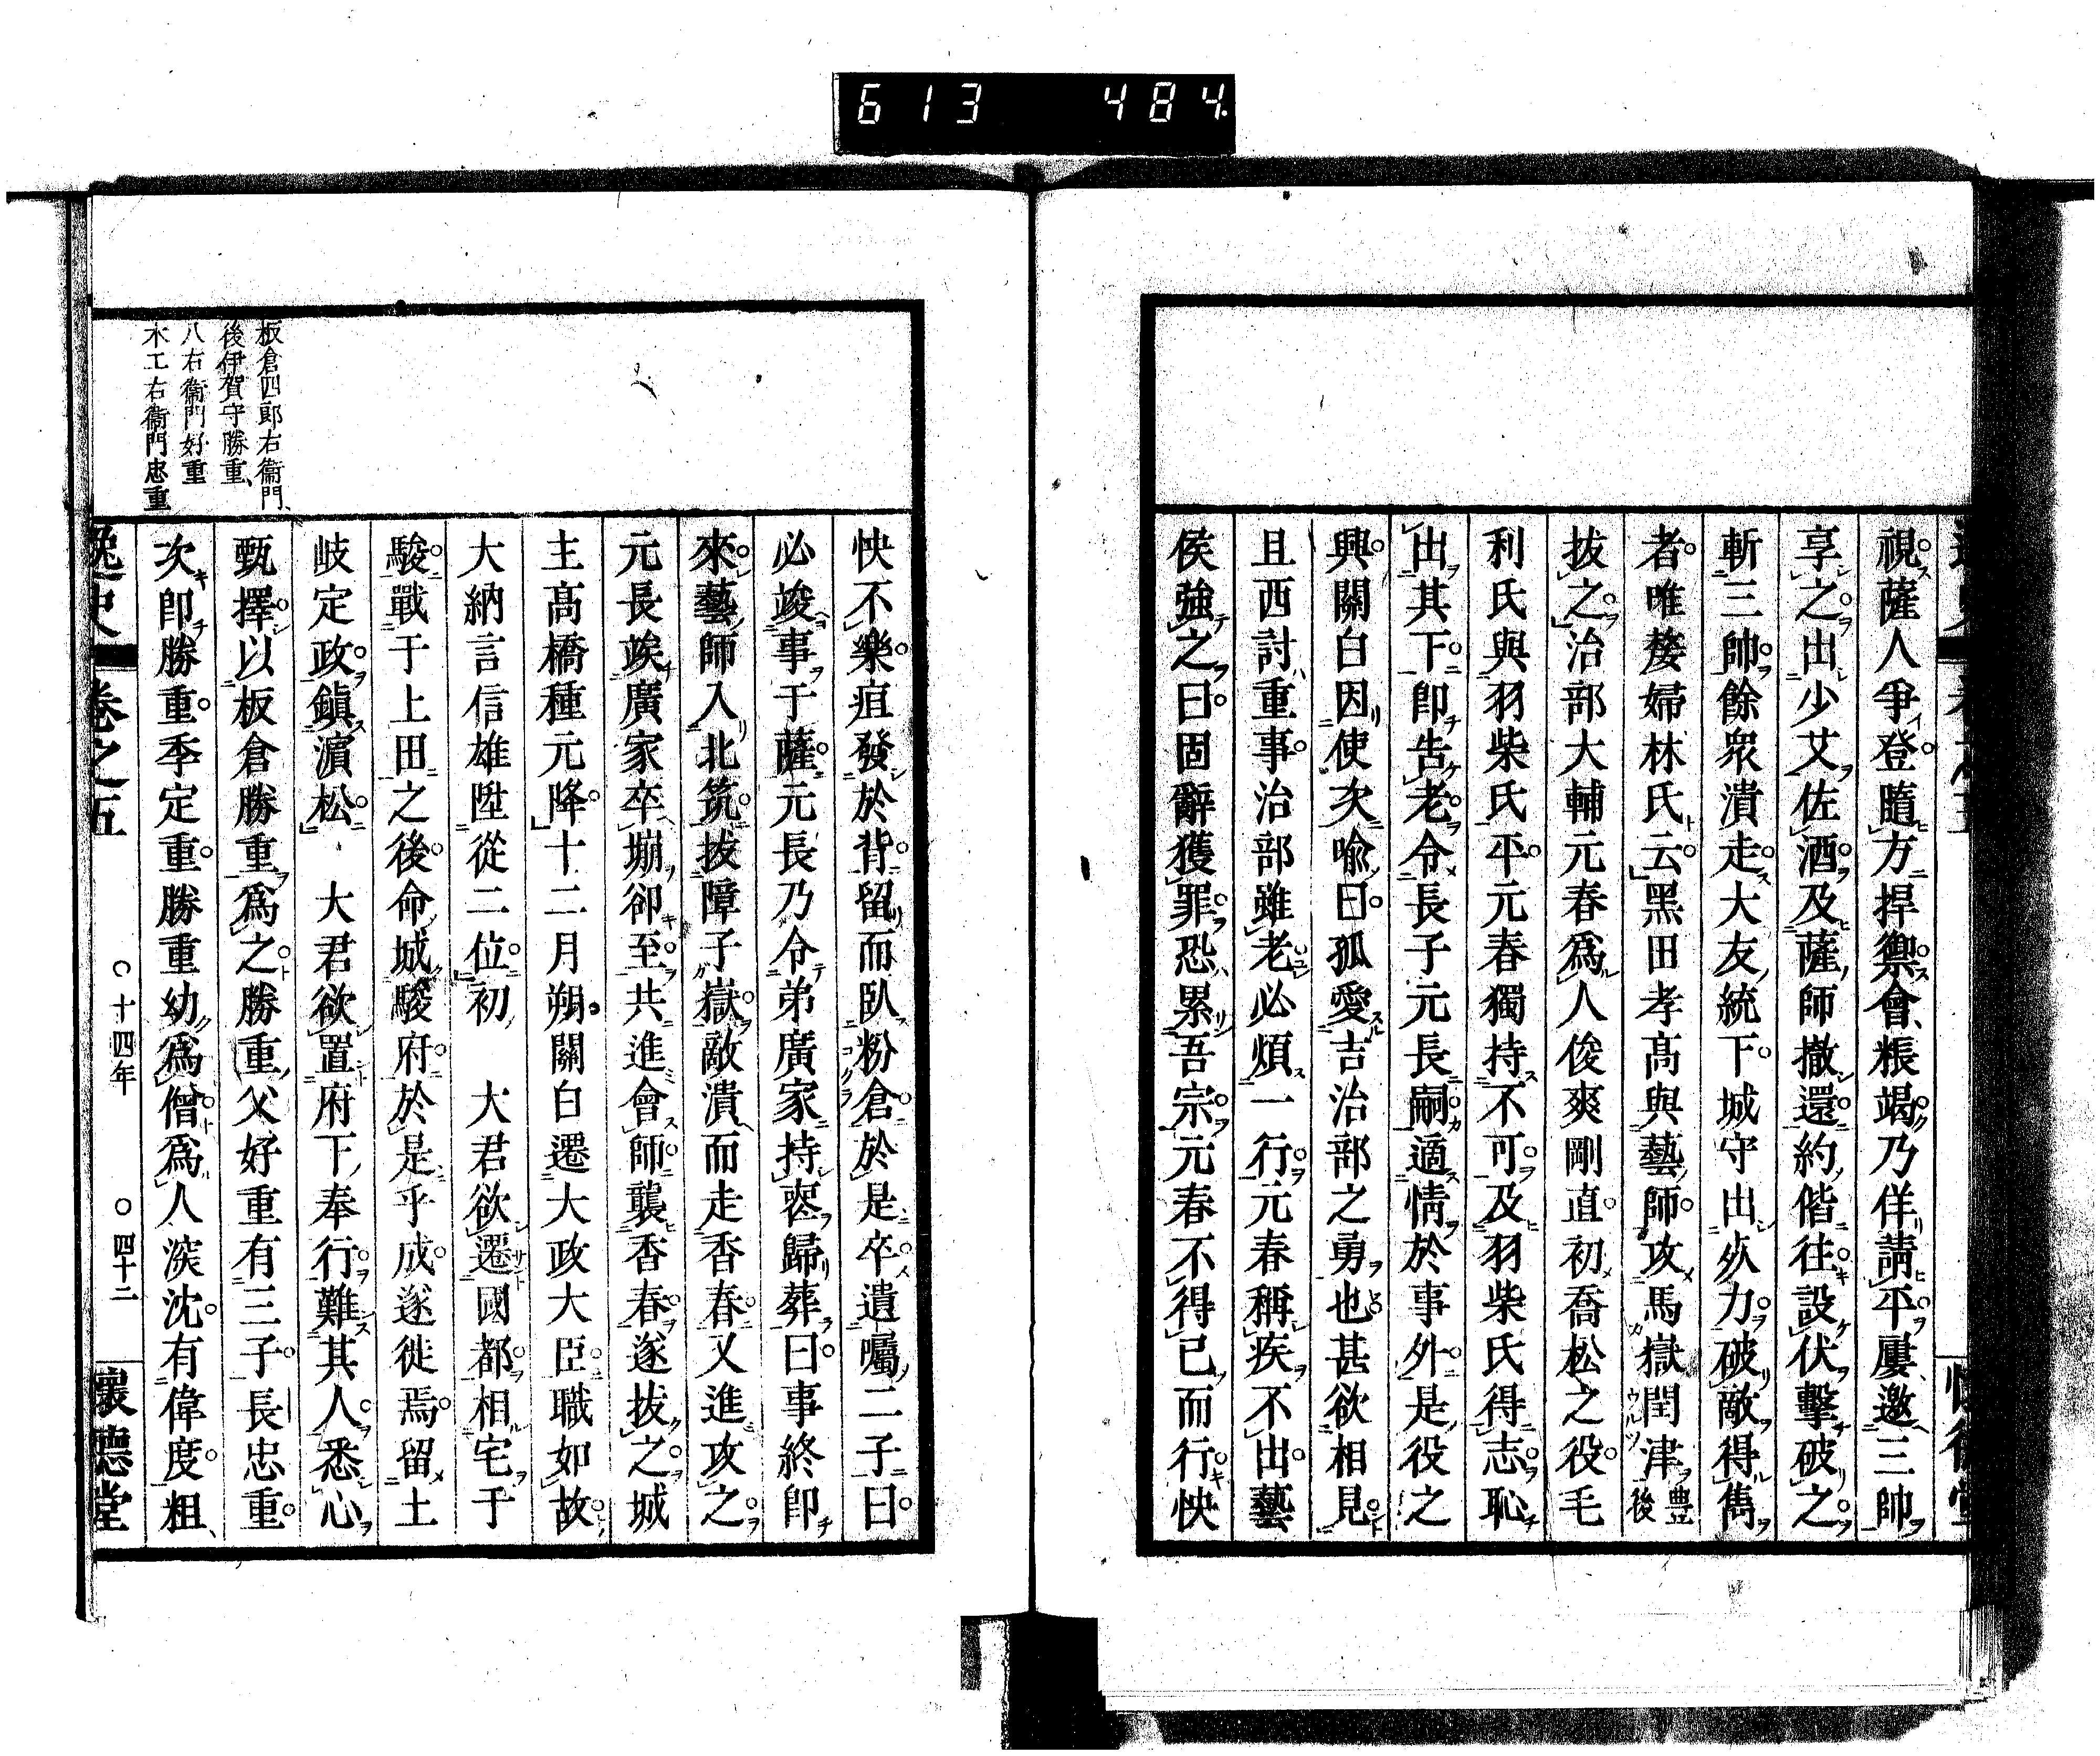 613 484
視薩人爭登隨方捍禦會粻竭乃佯請平屢邀三帥
享之出少艾佐酒及薩師撤還約偕往設伏擊破之
斬三帥餘衆潰走大友統下城守出死力破敵得雋
者唯嫠婦林氏云黑田孝高與藝師攻馬嶽閏津豊後
拔之治部大輔元春爲人俊爽剛直初喬松之役毛
利氏與羽柴氏平元春獨持不可及羽柴氏得志恥
出其下卽告老令長子元長嗣適情於事外是役之
興關白因使次喩曰孤愛吉治部之勇也甚欲相見
且西討重事治部雖老必煩一行元春稱疾不出藝
侯強之曰固辭獲罪恐累吾宗元春不得已而行怏
怏不樂疽發於背留而臥粉倉於是卒遺囑二子曰
必竣事于薩元長乃令弟廣家持喪歸葬曰事終卽
來藝師入北筑拔障子嶽敵潰而走香春又進攻之
元長竢廣家卒堋卻至共進會師襲香春遂拔之城
主高橋種元降十二月朔關白遷大政大臣職如故
大納言信雄陞從二位初 大君欲遷國都相宅于
駿戰于上田之後命城駿府於是乎成遂徙焉留土
岐定政鎭濵松 大君欲置府下奉行難其人悉心
甄擇以板倉勝重爲之勝重父好重有三子長忠重
次卽勝重季定重勝重幼爲僧爲人㴱沈有偉度粗
板倉四郎右衞門
後伊賀守勝重
八右衞門好重
木工右衞門忠重
逸史 卷之五 ○十四年 ○四十二 懷德堂